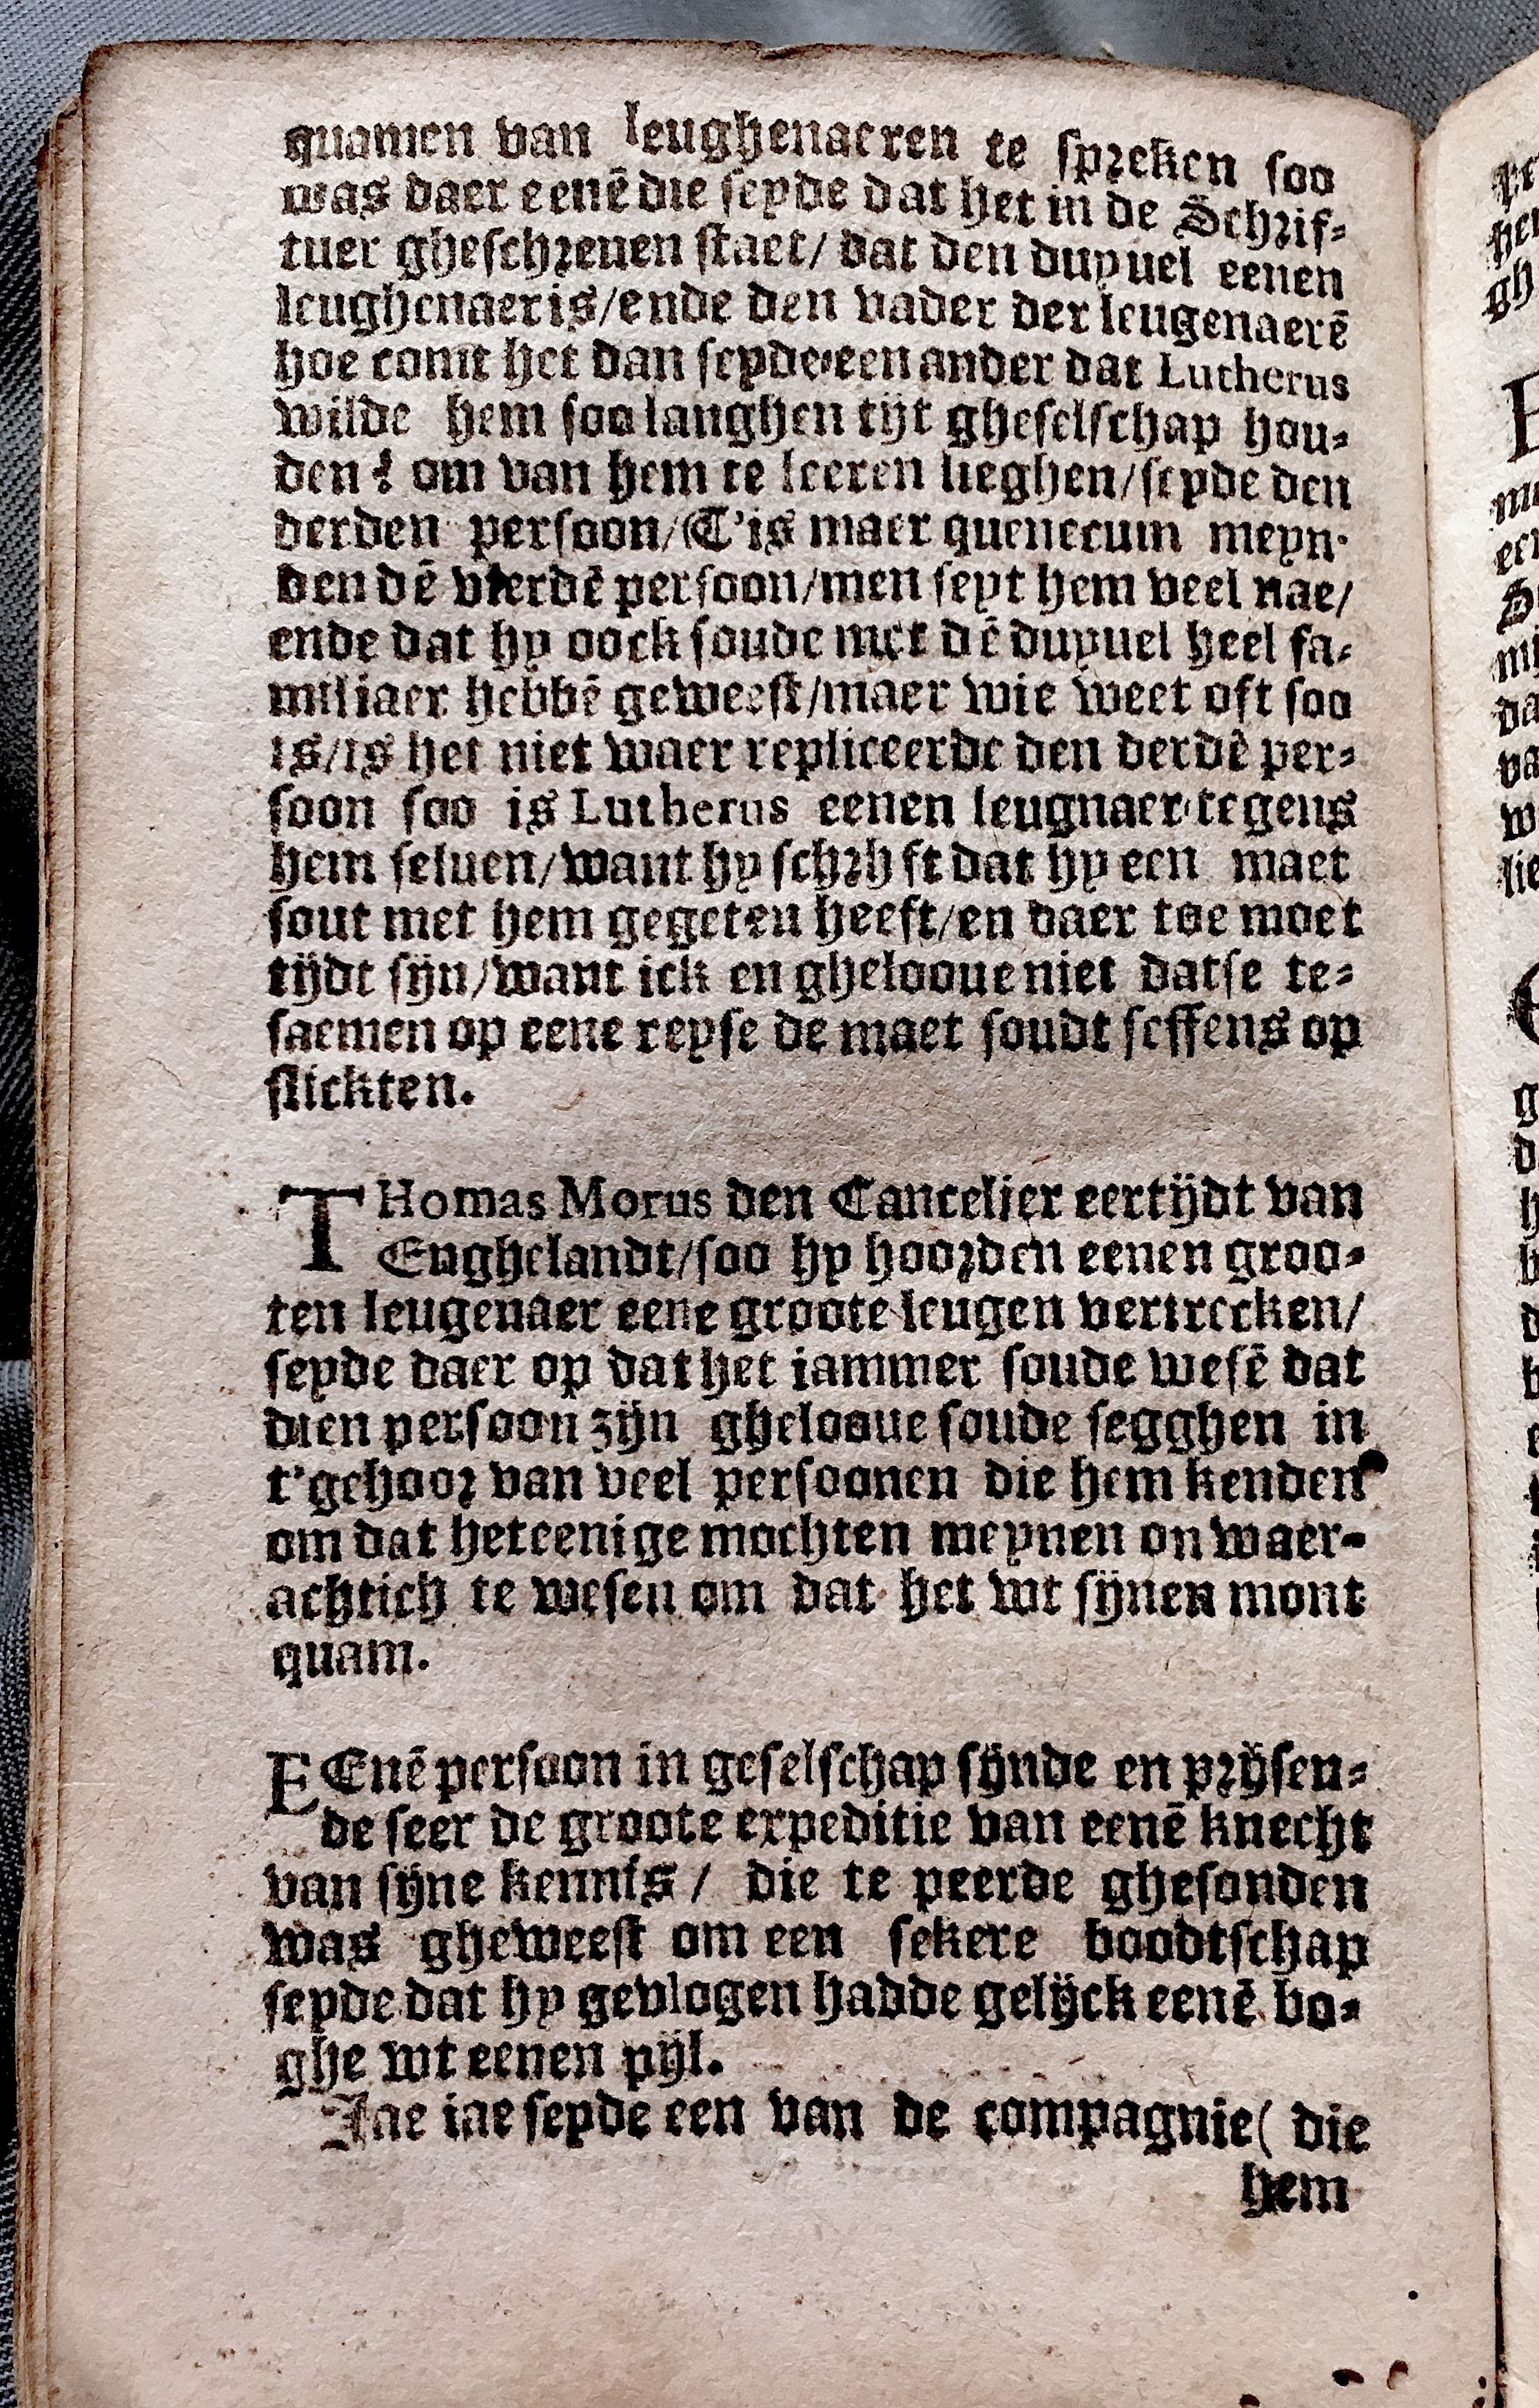 quamen van leughenaeren te spreken soo
was daer eenē die seyde dat het in de Schrif-
tuer gheschreuen staet/ dat den duyuel eenen
leughenaer is/ende den vader der leugenaerē
hoe comt het dan seyde een ander dat Lutherus
wilde hem soo langhen tijt gheselschap hou-
den? om van hem te leeren lieghen/seyde den
derden persoon/ T'is maer quenecum meyn-
den dē vierdē persoon/men seyt hem veel nae/
ende dat hy oock soude met dē duyuel heel fa-
miliaer hebbē geweest/maer wie weet oft soo
is/is het niet waer repliceerde den derdē per-
soon soo is Lutherus eenen leugnaer tegens
hem seluen/want hy schrijft dat hy een maet
sout met hem gegeten heeft/en daer toe moet
tijdt sijn/want ick en ghelooue niet datse te-
saemen op eene reyse de maet soudt seffens op
slickten.
THomas Morus den Cancelier eertijdt van
Enghelandt/soo hy hoorden eenen groo-
ten leugenaer eene groote leugen vertrecken/
seyde daer op dat het iammer soude wesē dat
dien persoon zijn ghelooue soude segghen in
t'gehoor van veel persoonen die hem kenden
om dat het eenige mochten meynen onwaer-
achtich te wesen om dat het wt sijnen mont
quam.
EEnē persoon in geselschap sijnde en prijsen-
de seer de groote expeditie van eenē knecht
van sijne kennis/ die te peerde ghesonden
was gheweest om een sekere boodtschap
seyde dat hy gevlogen hadde gelijck eenē bo-
ghe wt eenen pijl.
Iae iae seyde een van de compagnie( die
hem